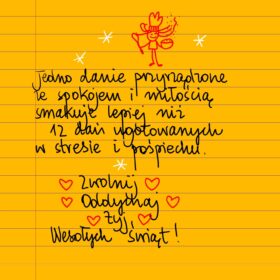 Jedno danie przyrządzone
ze spokojem i miłością
smakuje lepiej niż
12 dań ugotowanych
w stresie i pośpiechu.
Zwolnij
Oddychaj
Żyj
Wesołych Świąt!